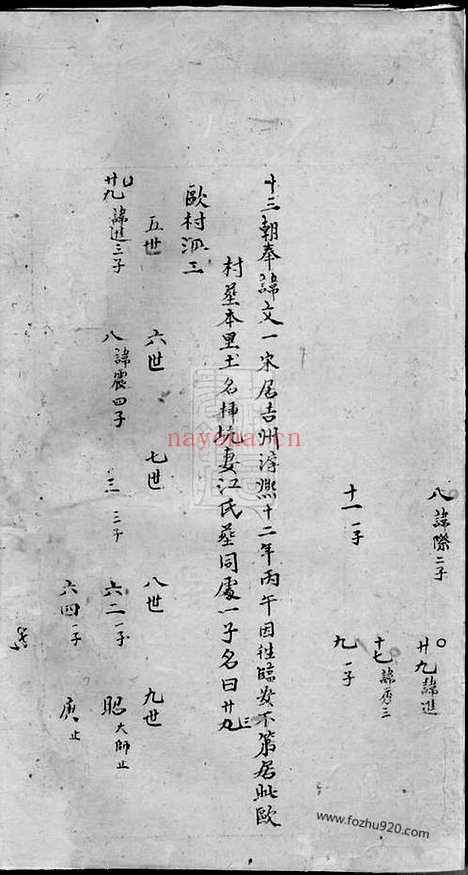 八 諱際二子
○
廿九 諱進
十七 諱秀三
十一 一子
九 一子
十三朝奉諱文一宋居吉州淳熙十二年丙午因往臨安不第居此歐
村葬本里土名柿坑妻江氏葬同處一子名曰廿九三
歐村派三
五世 六世 七世 八世 九世
廿九 諱進三子
八 諱震四子
三 三子
六二 一子
昭 大師止
六四 一子
庚 止
nayona.cn
www.fozhu920.com